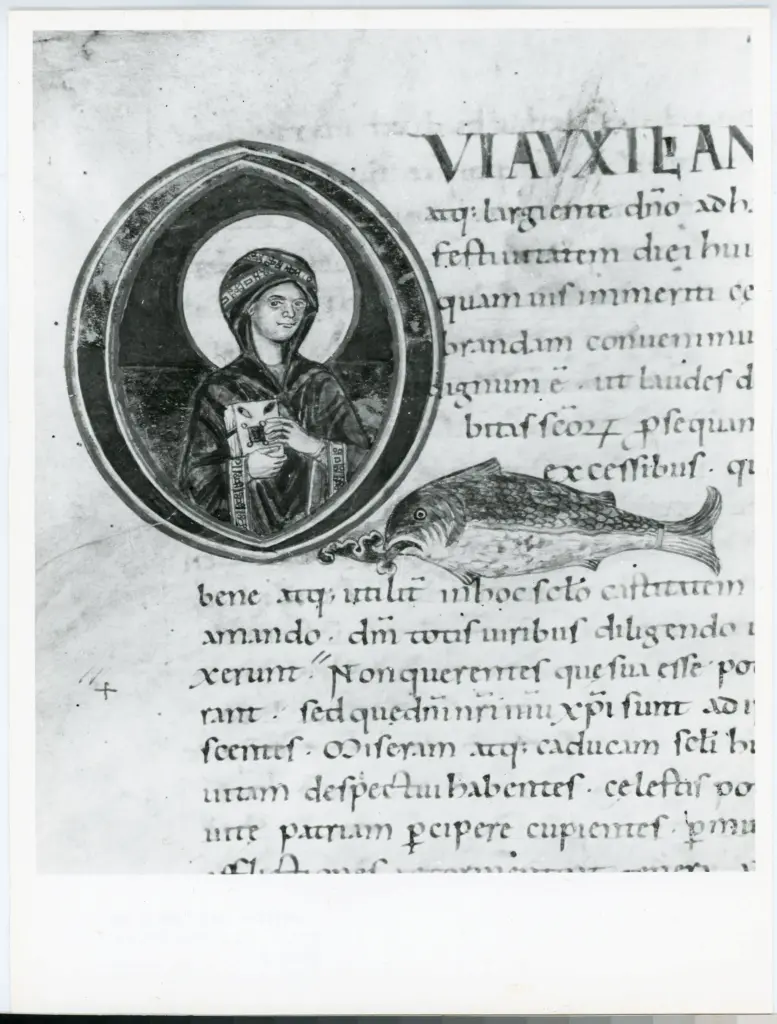 QVIAVXILIAN
atq; largiente dño adh
festiuitatem diei hui
quam uis inmeriti ce
brandam conuenimu
dignum ẽ · ut laudes d
bitas scõꝝ ꝑsequan
excessibus · qu
bene atq; utilit̃ inhoc sclo castitatem
amando · dm̃ totis uiribus diligendo
xerunt · Non querentes que sua esse po
rant · sed que dñi nr̃i ihu xp̃i sunt ad
scentes · Miseram atq; caducam scli hu
uitam despectui habentes · celestis po
patriam ꝑcipere cupientes · ꝑ mu